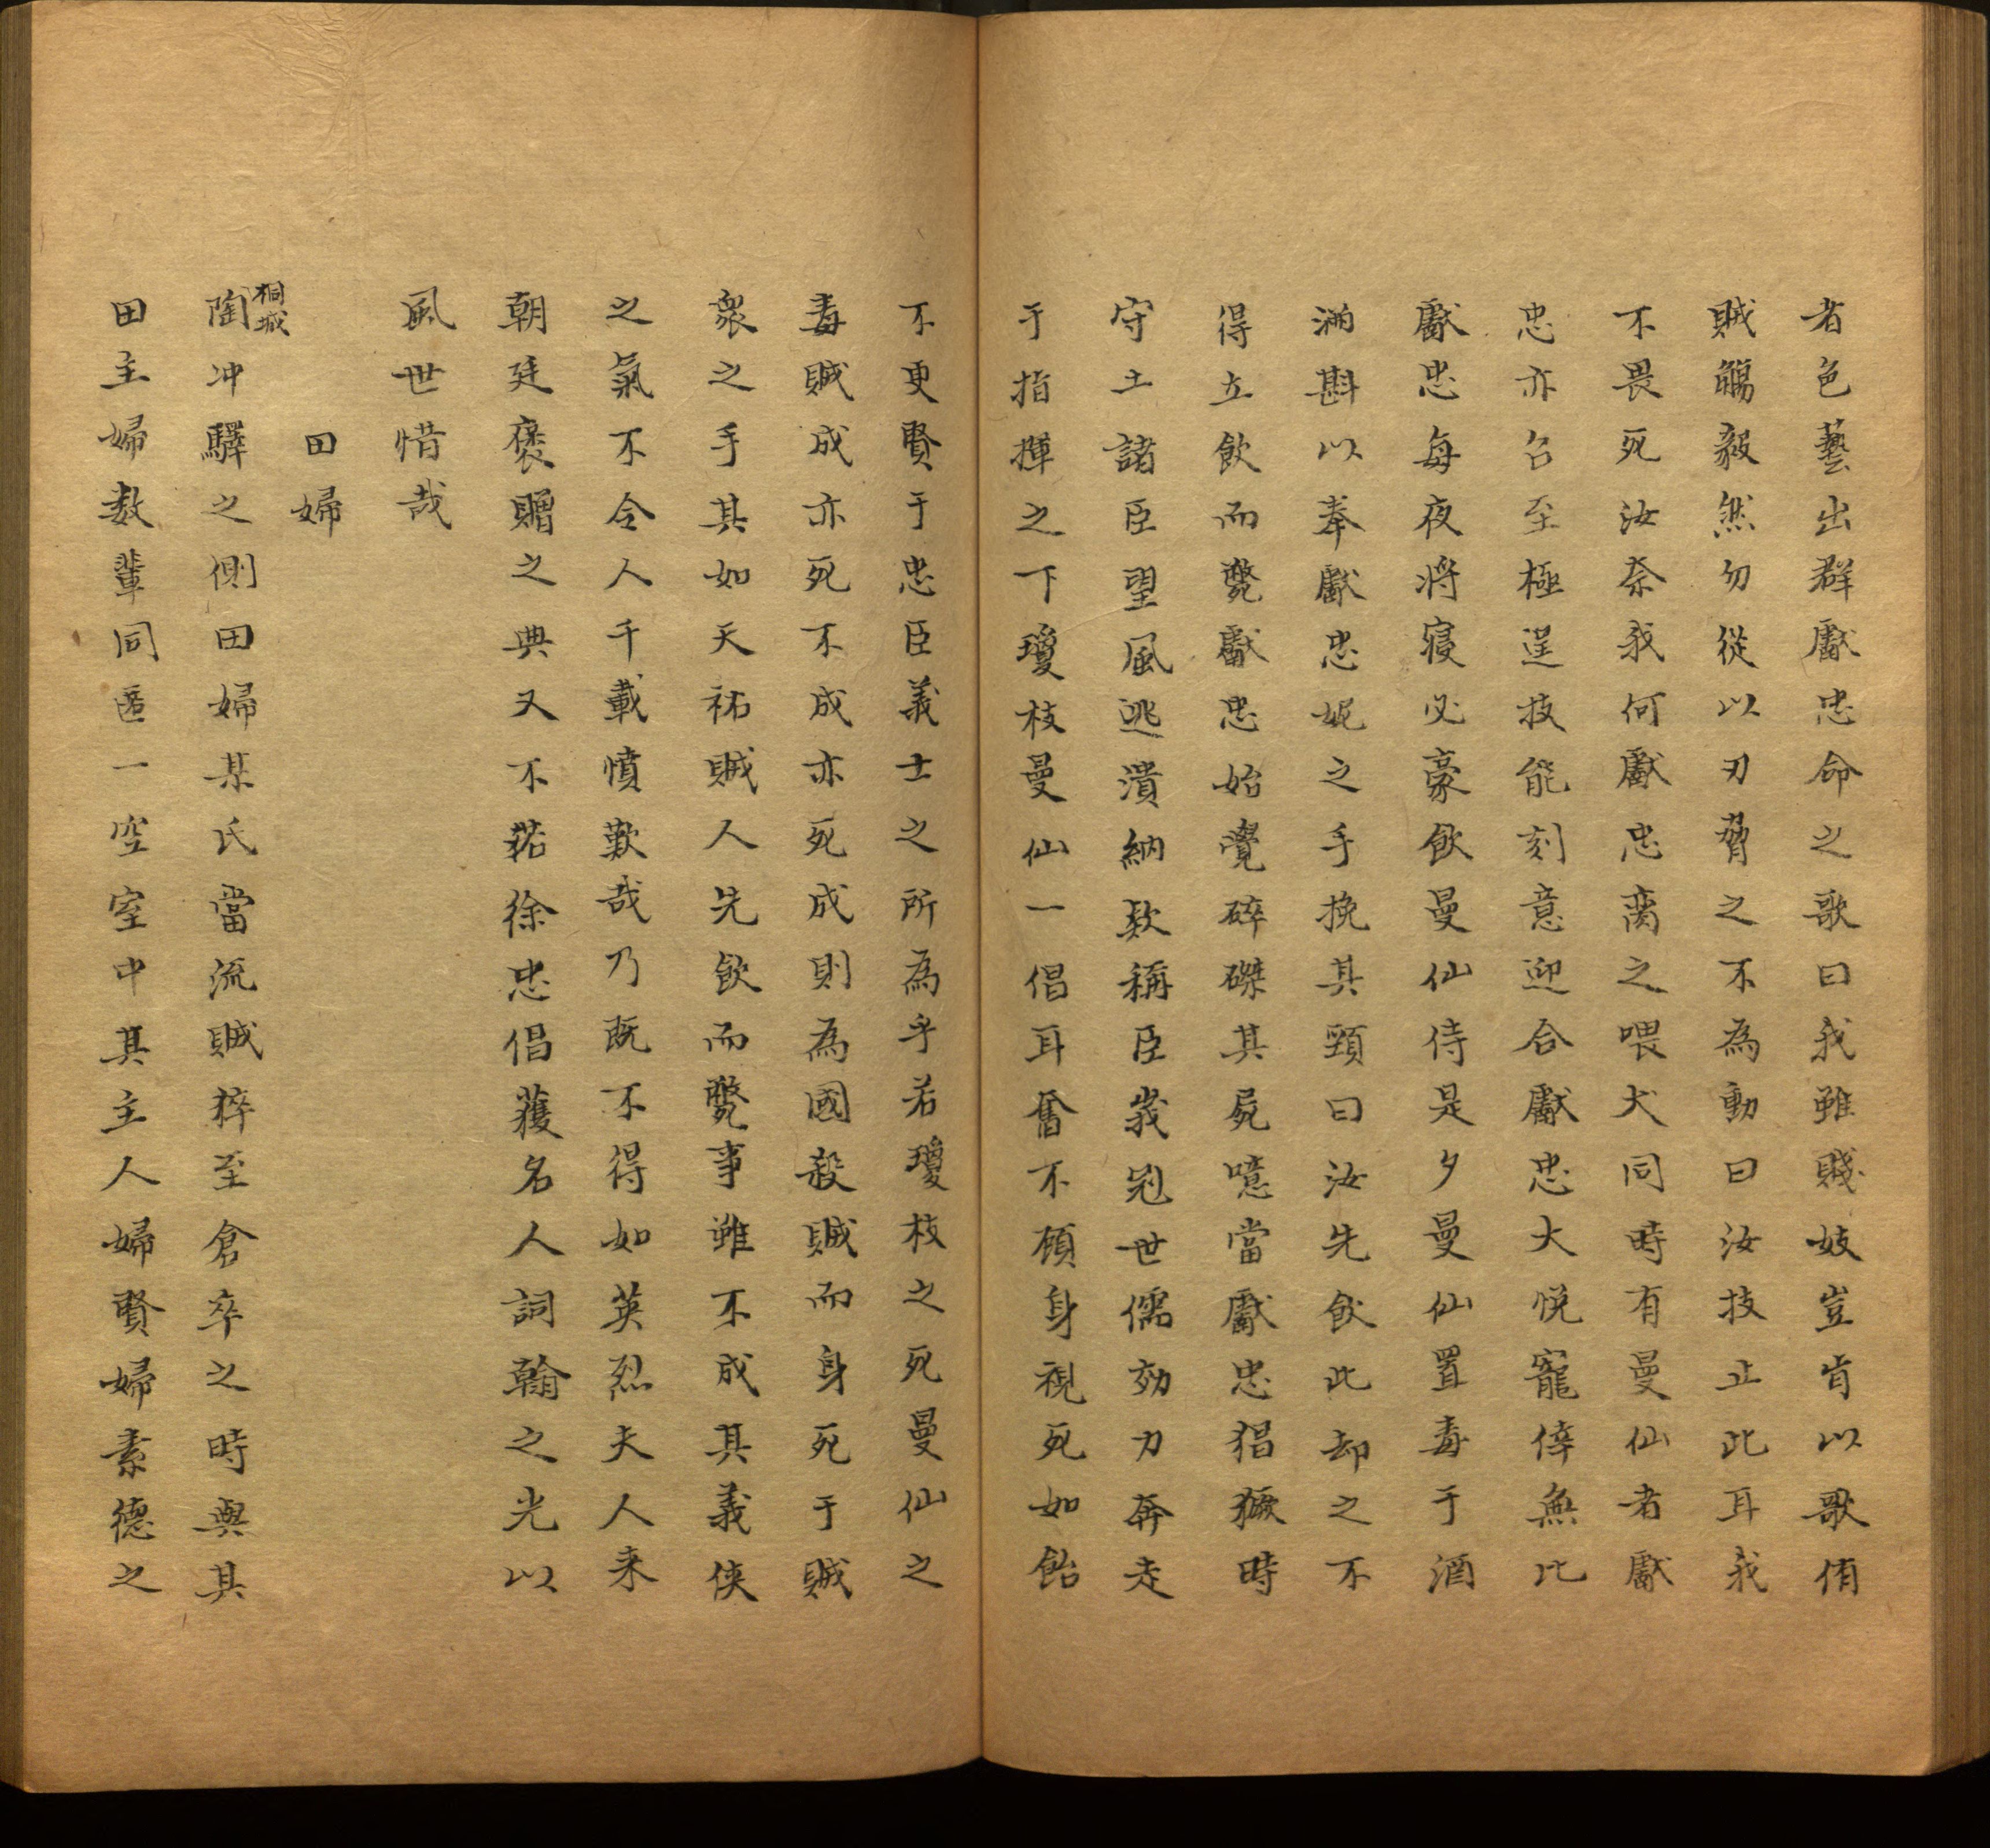 者色藝出群獻忠命之歌曰我雖賤妓豈肯以歌侑
賊觴毅然勿從以刃脅之不為動曰汝技止此耳我
不畏死汝奈我何獻忠臠之喂犬同時有曼仙者獻
忠亦召至極逞技能刻意迎合獻忠大悅寵倖無比
獻忠每夜將寢必豪飲曼仙侍是夕曼仙置毒于酒
滿斟以奉獻忠妮之手挽其頸曰汝先飲此却之不
得立飲而斃獻忠始覺碎磔其屍噫當獻忠猖獗時
守土諸臣望風逃潰納款稱臣峩冠世儒効力奔走
于指揮之下瓊枝曼仙一倡耳奮不顧身視死如飴
不更賢于忠臣義士之所為乎若瓊枝之死曼仙之
毒賊成亦死不成亦死成則為國殺賊而身死于賊
衆之手其如天祐賊人先飲而斃事雖不成其義俠
之氣不令人千載憤歎哉乃既不得如英烈夫人来
朝廷褒贈之典又不若徐忠倡獲名人詞翰之光以
風世惜哉
田婦
桐城
陶冲驛之側田婦某氏當流賊猝至倉卒之時與其
田主婦数輩同匿一空室中其主人婦賢婦素德之